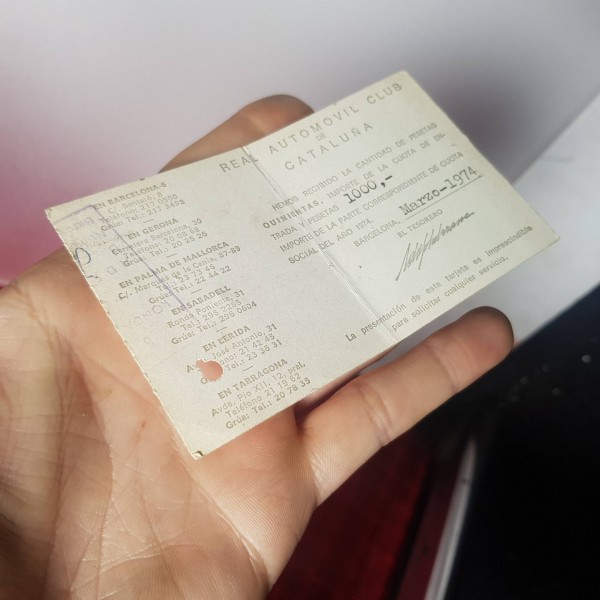 REAL AUTOMOVIL CLUB
DE
CATALUÑA
HEMOS RECIBIDO LA CANTIDAD DE PESETAS
QUINIENTAS, IMPORTE DE LA CUOTA DE EN-
TRADA Y PESETAS 1000,-
IMPORTE DE LA PARTE CORRESPONDIENTE DE CUOTA
SOCIAL DEL AÑO 1974.
BARCELONA, Marzo-1974
EL TESORERO
La presentación de esta tarjeta es imprescindible
para solicitar cualquier servicio.
EN BARCELONA-6
C/. Santaló, 8
Teléfono: 217 0500
Grúa: Tel.: 217 3498
EN GERONA
Carretera Barcelona, 30
Teléfono: 20 08 68
Grúa: Tel.: 20 25 25
EN PALMA DE MALLORCA
C/. Marqués de la Cenia, 37-39
Tel.: 23 73 45
Grúa: Tel.: 22 44 22
EN SABADELL
Ronda Poniente, 31
Tel.: 295 2263
Grúa: Tel.: 296 0604
EN LERIDA
José Antonio, 31
21 42 45
Tel.: 23 35 31
EN TARRAGONA
Avda. Pío XII, 12, pral.
Teléfono: 21 19 62
Grúa: Tel.: 20 78 35